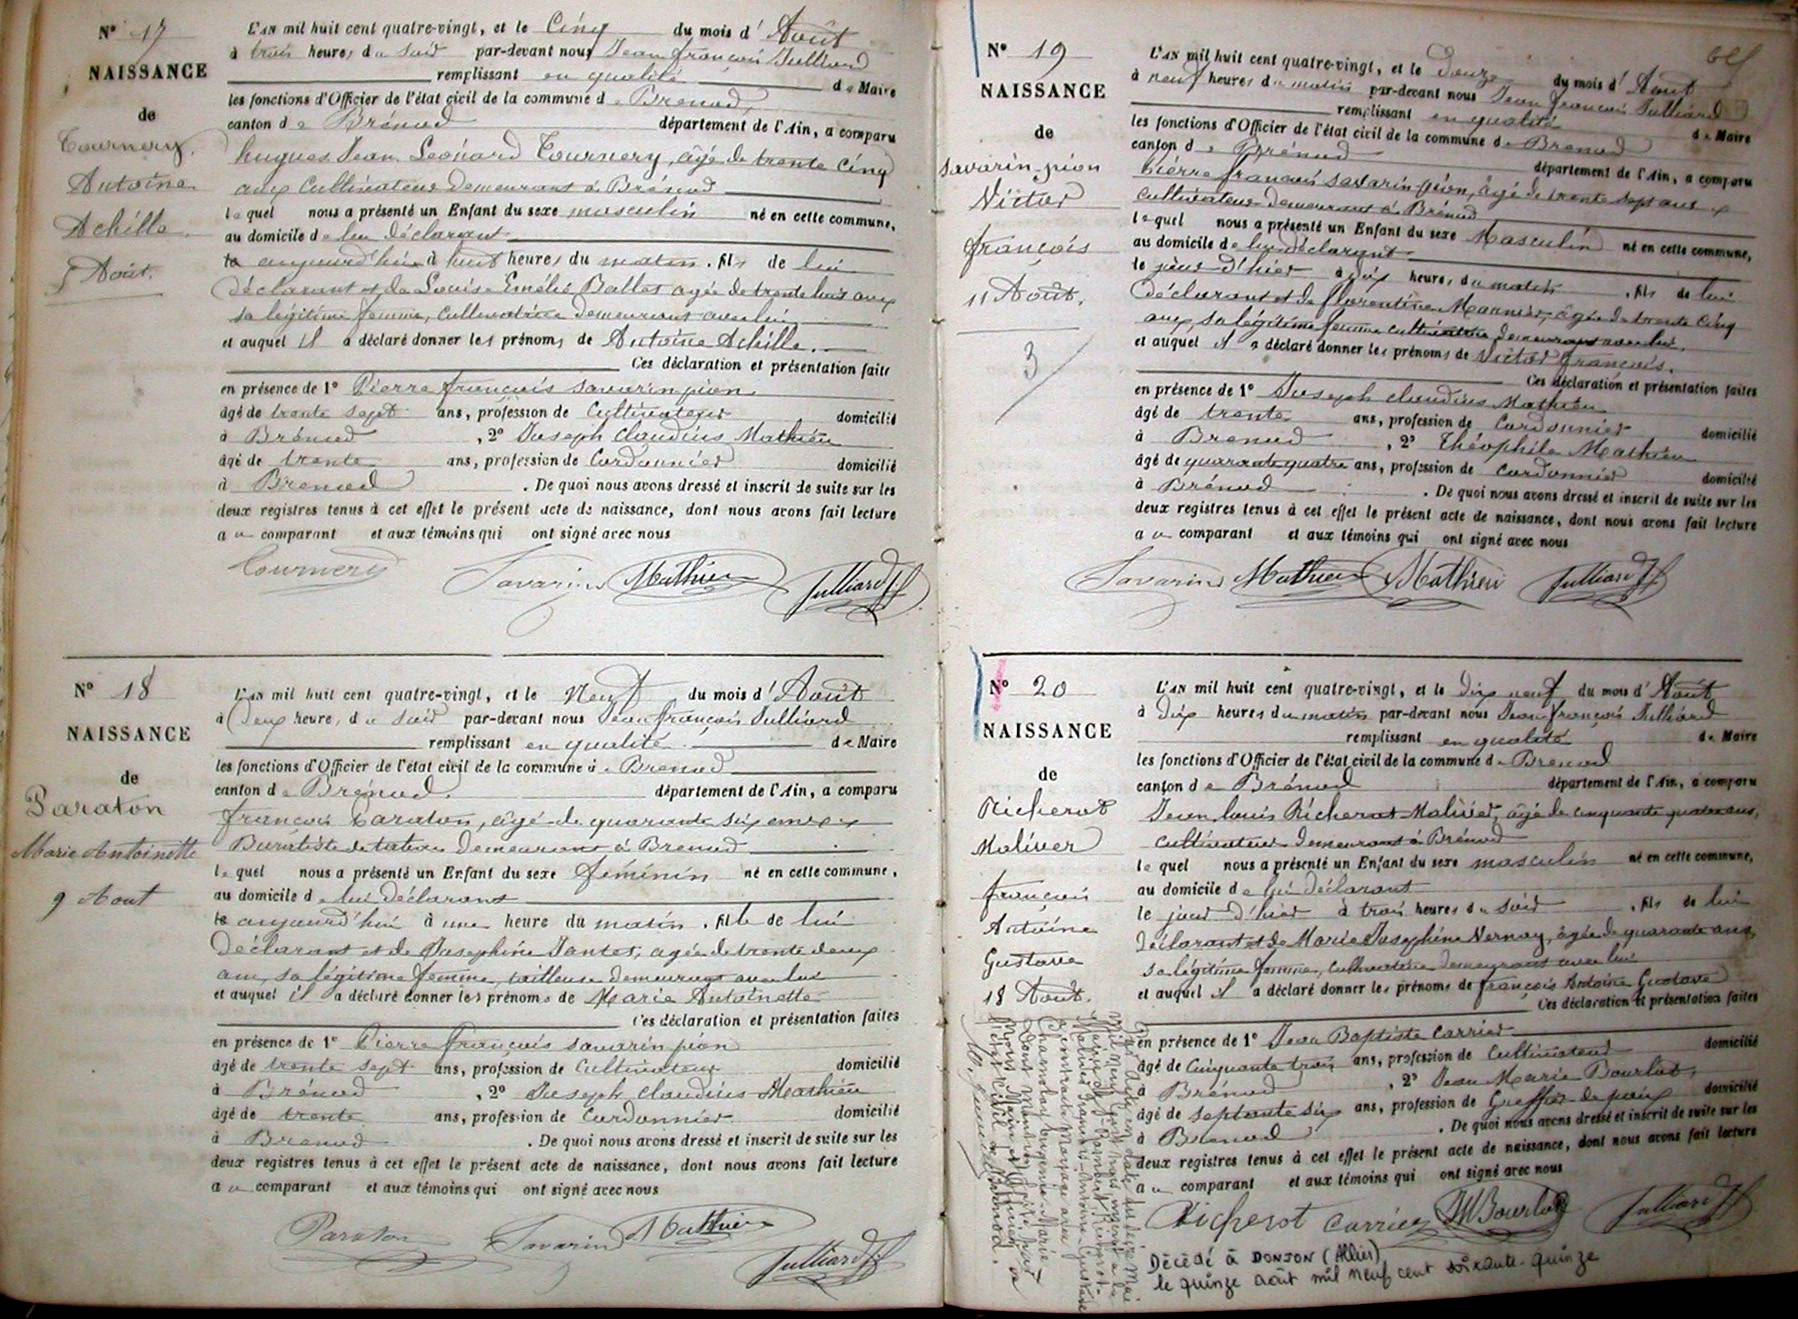 N° 17
NAISSANCE
de
Tournery.
Antoine
Achille.
5 Août.
L'AN mil huit cent quatre-vingt, et le Cinq du mois d' Août
à trois heures du soir par-devant nous Jean françois Julliard
remplissant en qualité de Maire
les fonctions d'Officier de l'état civil de la commune de Brenod,
canton de Brénod département de l'Ain, a comparu
hugues Jean Leonard Tournery, âgé de trente cinq
ans cultivateur demeurant à Brénod
lequel nous a présenté un Enfant du sexe masculin né en cette commune,
au domicile de lui déclarant
aujourd'hui à huit heures du matin. fils de lui
déclarant et de Louise Emélie Ballet agée de trente huit ans
sa légitime femme, cultivatrice demeurant avec lui
et auquel il a déclaré donner les prénoms de Antoine Achille.
Ces déclaration et présentation faite
en présence de 1° Pierre françois savarin pion
âgé de trente sept ans, profession de Cultivateur domicilié
à Brénod , 2° Joseph Claudius Mathieu
âgé de trente ans, profession de Cordonnier domicilié
à Brenod . De quoi nous avons dressé et inscrit de suite sur les
deux registres tenus à cet effet le présent acte de naissance, dont nous avons fait lecture
au comparant et aux témoins qui ont signé avec nous
Tournery Savarin Mathieu Julliard Jf
N° 18
NAISSANCE
de
Paraton
Marie Antoinette
9 Aout
L'AN mil huit cent quatre-vingt, et le Neuf du mois d' Août
à Deux heures du soir par-devant nous Jean françois Julliard
remplissant en qualité de Maire
les fonctions d'Officier de l'état civil de la commune de Brenod
canton de Brénod. département de l'Ain, a comparu
françois Paraton, âgé de quarante six ans
Buraliste de tabac demeurant à Brenod
lequel nous a présenté un Enfant du sexe féminin né en cette commune,
au domicile de lui déclarant
aujourd'hui à une heure du matin. fille de lui
déclarant et de Josephine Jantet, agée de trente deux
ans, sa légitime femme, tailleuse demeurant avec lui
et auquel il a déclaré donner les prénoms de Marie Antoinette
Ces déclaration et présentation faites
en présence de 1° Pierre françois savarin pion
âgé de trente sept ans, profession de Cultivateur domicilié
à Brénod , 2° Joseph Claudius Mathieu
âgé de trente ans, profession de Cordonnier domicilié
à Brenod . De quoi nous avons dressé et inscrit de suite sur les
deux registres tenus à cet effet le présent acte de naissance, dont nous avons fait lecture
au comparant et aux témoins qui ont signé avec nous
Paraton Savarin Mathieu
Julliard Jf
N° 19
NAISSANCE
de
Savarin pion
Victor
françois
11 Août.
3
L'AN mil huit cent quatre-vingt, et le douze du mois d' Août
à neuf heures du matin par-devant nous Jean françois Julliard
remplissant en qualité de Maire
les fonctions d'Officier de l'état civil de la commune de Brenod
canton de Brénod département de l'Ain, a comparu
Pierre françois savarin pion, âgé de trente sept ans
cultivateur demeurant à Brénod
lequel nous a présenté un Enfant du sexe Masculin né en cette commune,
au domicile de lui déclarant
le jour d'hier à dix heures du matin. fils de lui
déclarant et de florentine Monnier, âgée de trente cinq
ans, sa légitime femme cultivatrice demeurant avec lui,
et auquel il a déclaré donner les prénoms de Victor françois.
Ces déclaration et présentation faites
en présence de 1° Joseph claudius Mathieu
âgé de trente ans, profession de Cordonnier domicilié
à Brenod , 2° Théophile Mathieu
âgé de quarante quatre ans, profession de cordonnier domicilié
à Brénod . De quoi nous avons dressé et inscrit de suite sur les
deux registres tenus à cet effet le présent acte de naissance, dont nous avons fait lecture
au comparant et aux témoins qui ont signé avec nous
Savarin Mathieu Mathieu Julliard Jf
N° 20
NAISSANCE
de
Richerot
Maliver
françois
Antoine
Gustave
18 Août.
L'AN mil huit cent quatre-vingt, et le dix neuf du mois d' Août
à dix heures du matin par-devant nous Jean françois Julliard
remplissant en qualité de Maire
les fonctions d'Officier de l'état civil de la commune de Brenod
canton de Brénod département de l'Ain, a comparu
Jean louis Richerot Malivier, âgé de cinquante quatre ans,
cultivateur demeurant à Brénod
lequel nous a présenté un Enfant du sexe masculin né en cette commune,
au domicile de lui déclarant
le jour d'hier à trois heures du soir. fils de lui
déclarant et de Marie Josephine Nernay, âgée de quarante ans,
sa légitime femme, cultivatrice demeurant avec lui
et auquel il a déclaré donner les prénoms de françois Antoine Gustave
Ces déclaration et présentation faites
en présence de 1° Jean Baptiste Carrier
âgé de Cinquante trois ans, profession de Cultivateur domicilié
à Brénod , 2° Jean Marie Bourlot,
âgé de septante six ans, profession de Greffier de paix domicilié
à Brenod . De quoi nous avons dressé et inscrit de suite sur les
deux registres tenus à cet effet le présent acte de naissance, dont nous avons fait lecture
au comparant et aux témoins qui ont signé avec nous
Richerot Carrier JM Bourlot Julliard Jf
Décédé à DONJON (Allier)
le quinze août mil neuf cent soixante-quinze